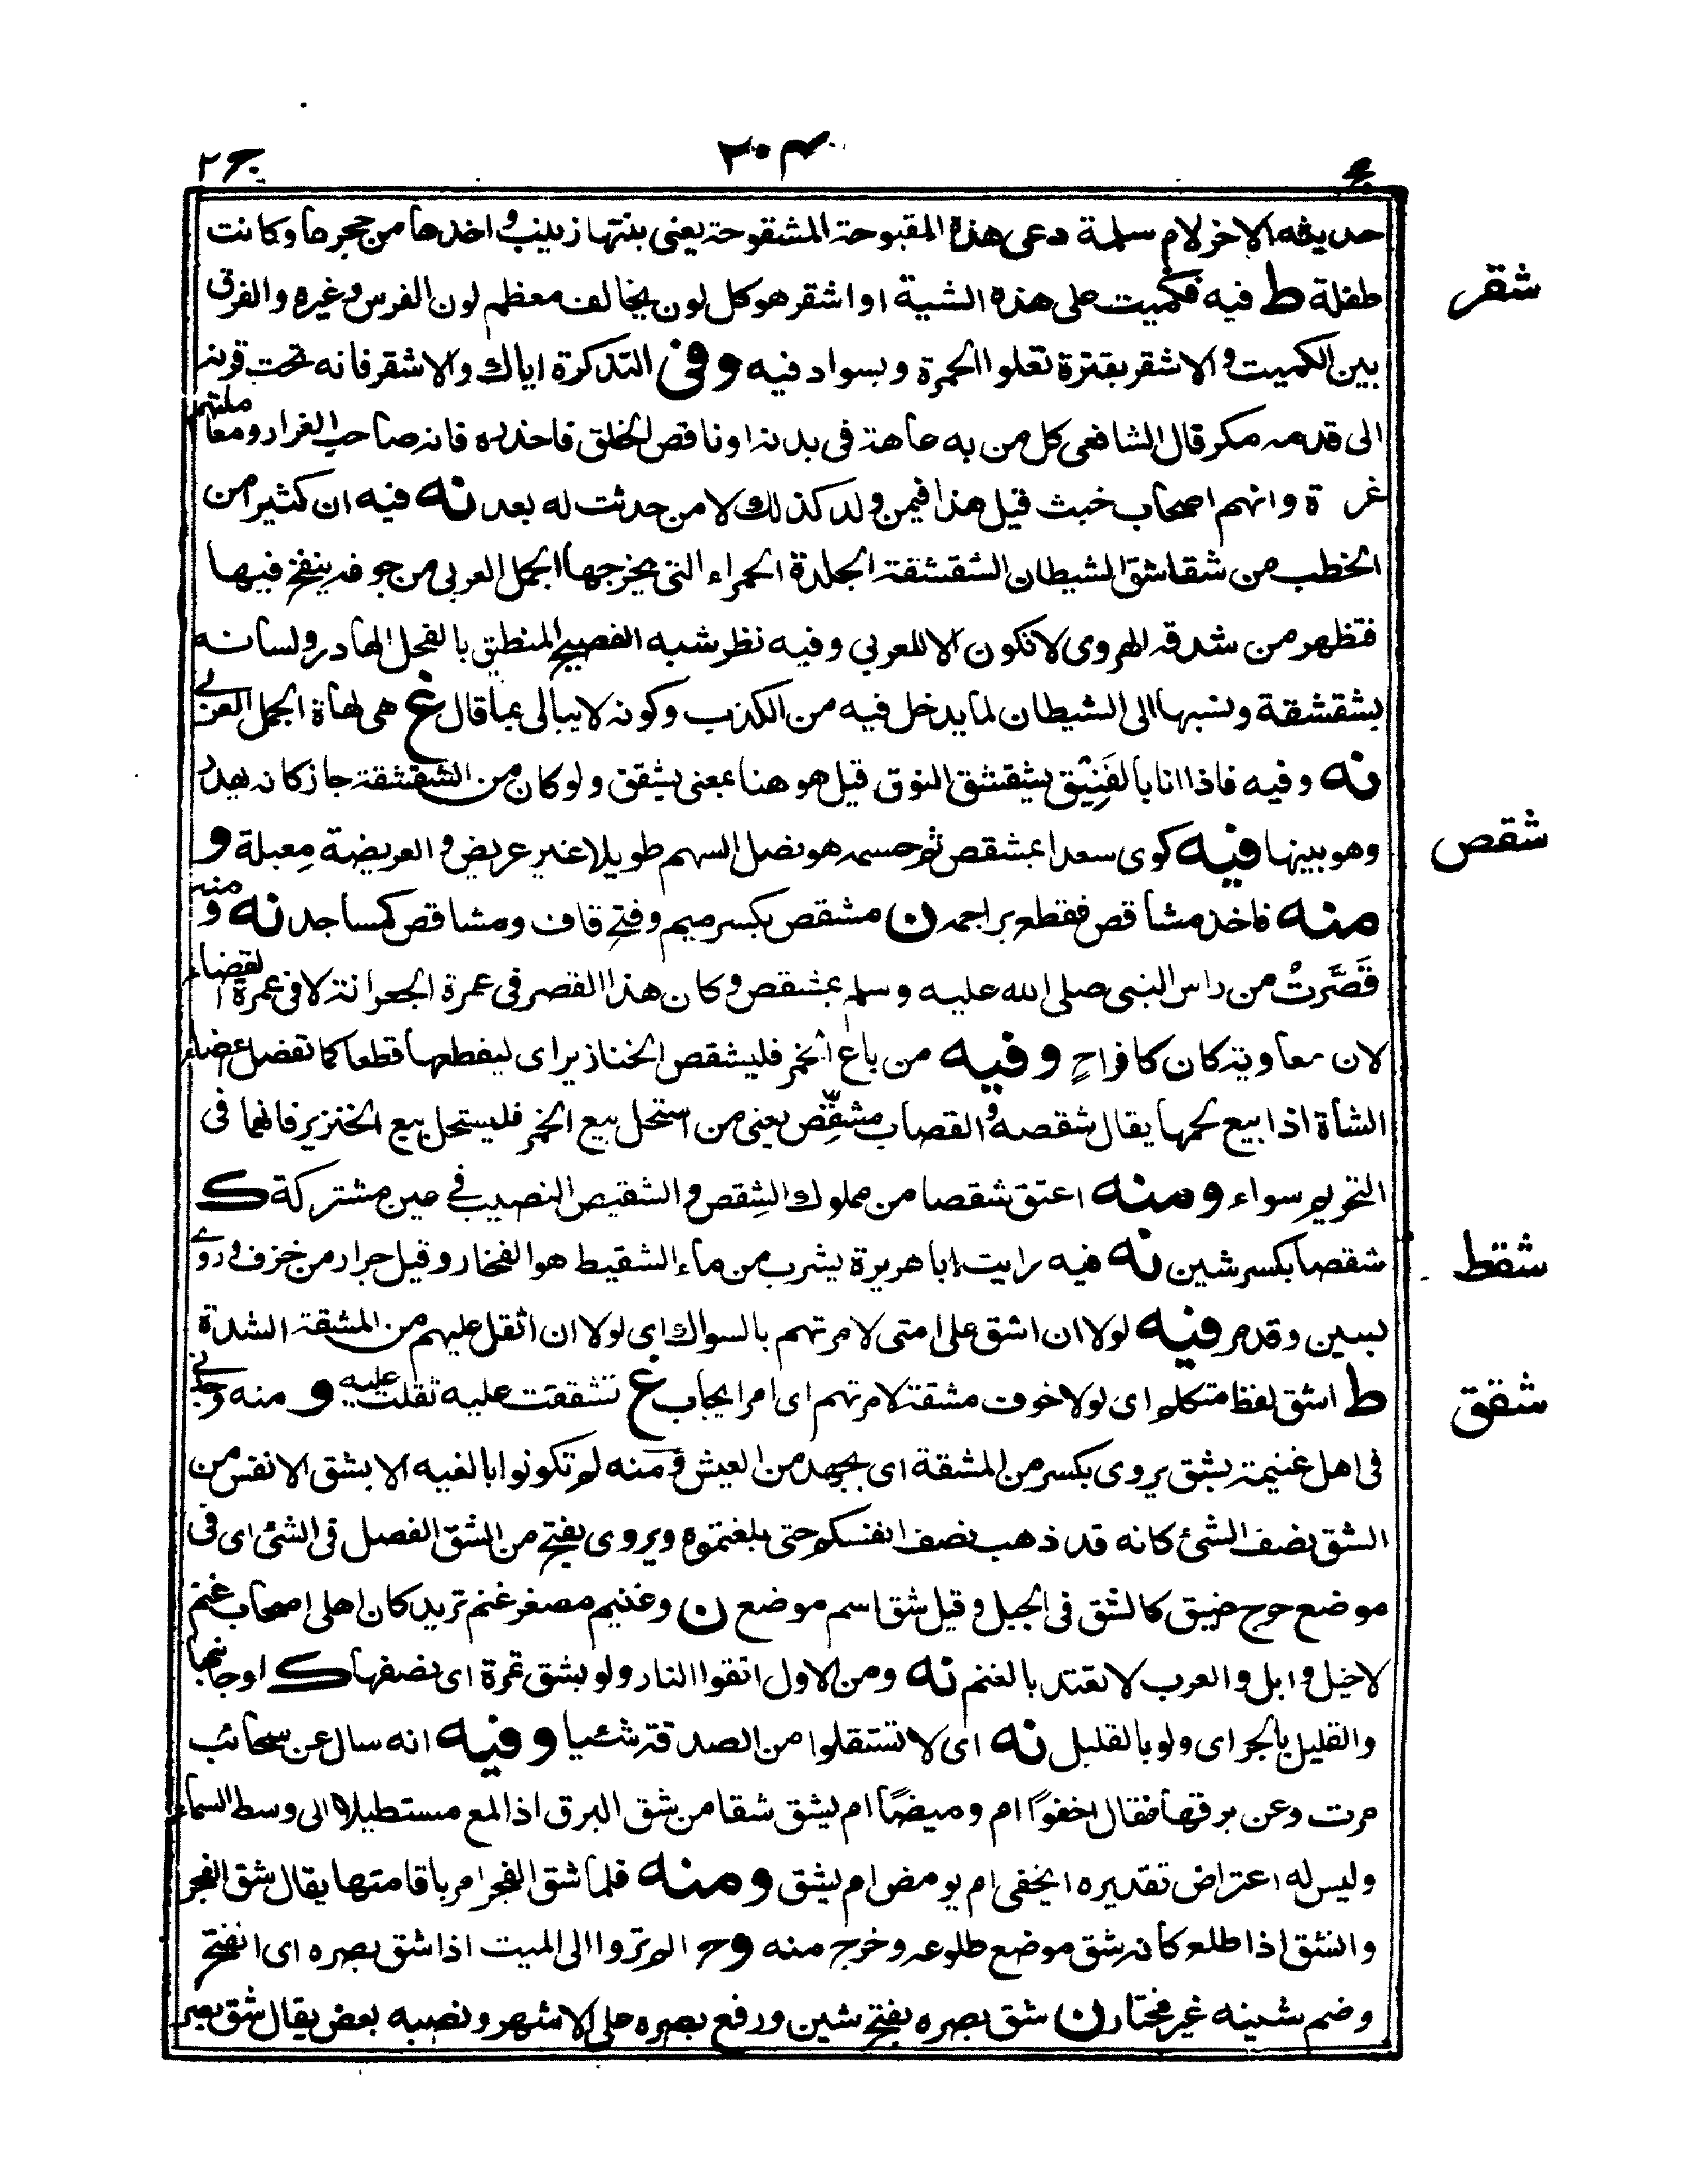 ج٢
٢٠٤
حديثه الاخر لام سلمة دعى هذه المقبوحة المشقوحة يعنى بنتها زينب و اخذها من حجرها و كانت
شقر
طفلة ط فيه فكميت على هذه الشية او اشقر هو كل لون يخالف معظم لون الفرس و غيره و الفرق
بين الكميت و الاشقر بقترة تعلوا الحمرة و بسواد فيه و فى التذكرة اياك و الاشقر فانه تحت قرنه
الى قدمه مكر قال الشافعى كل من به عاهة فى بدنه او ناقص الخلق فاحذره فانه صاحب الغرار و معاملتهم
عـ ـرة و انهم اصحاب خبث قيل هذا فيمن ولد كذلك لا من حدثت له بعد نه فيه ان كثيرا من
الخطب من شقاشق الشيطان الشقشقة الجلدة الحمراء التى يخرجها الجمل العربى من جوفه ينفخ فيها
فتظهر من شدقه الهروى لا تكون الا للعربي و فيه نظر شبه الفصيح المنطيق بالفحل الهادر و لسانه
بشقشقة و نسبها الى الشيطان لما يدخل فيه من الكذب و كونه لا يبالى بما قال غ هى لهاة الجمل العربى
نه و فيه فاذا انا بالفَنِيق يشقشق النوق قيل هو هنا بمعنى يشقق و لو كان من الشقشقة جاز كانه يهدر
شقص
و هو بينها فيه كوى سعدا بمشقص ثم حسمه هو نصل السهم طويلا غير عريض و العريضة مِعبلة و
منه فاخذ مشاقص فقطع براجمه ن مشقص بكسر ميم و فتح قاف و مشاقص كمساجد نه و منه
قَصَّرتُ من راس النبى صلى الله عليه و سلم بمشقص و كان هذا القصر فى عمرة الجعرانة لا فى عمرة القضاء
لان معاوية كان كافرا ح و فيه من باع الخمر فليشقص الخنازير اى ليقطعها قطعا كما تفصل اعضاء
الشاة اذا بيع لحمها يقال شقصه و القصاب مشقِّص يعنى من استحل بيع الخمر فليستحل بيع الخنزير فانهما فى
التحريم سواء و منه اعتق شقصا من مملوك الشِقص و الشقيص النصيب فى عين مشتركة ك
شقط
شقصا بكسر شين نه فيه رايت ابا هريرة يشرب من ماء الشقيط هو الفخار و قيل جرار من خزف و روى
بسين و قد مر فيه لولا ان اشق على امتى لامرتهم بالسواك اى لولا ان اثقل عليهم من المشقة الشدة
شقق
ط اشق لفظ متكلم اى لولا خوف مشقة لامرتهم اى امر ايجاب غ تشققت عليه ثقلت عليه و منه وجدنى
فى اهل غنيمة بشق يروى بكسر من المشقة اى بجهد من العيش و منه لم تكونوا بالغيه الا بشق الانفس من
الشق نصف الشئ كانه قد ذهب نصف انفسكم حتى بلغتموه و يروى بفتح من الشق الفصل فى الشئ اى فى
موضع حرج ضيق كالشق فى الجبل و قيل شق اسم موضع ن و غنيم مصغر غنم تريد كان اهلى اصحاب غنم
لا خيل و ابل و العرب لا تعتد بالغنم نه و من الاول اتقوا النار و لو بشق تمرة اى نصفها ك او جانبها
و القليل بالجر اى و لو بالقليل نه اى لا تستقلوا من الصدقة شئيا و فيه انه سال عن سحائب
مرت و عن برقها فقال اخفوًا ام و ميضًا ام يشق شقا من شق البرق اذا لمع مستطيلا الى وسط السماء
و ليس له اعتراض تقديره ايخفى ام يومض ام يشق و منه فلما شق الفجر امر باقامتها يقال شق الفجر
و انشق اذا طلع كانه شق موضع طلوعه و خرج منه وح الم تروا الى الميت اذا شق بصره اى انفتح
و ضم شينه غير مختار ن شق بصره بفتح شين و رفع بصره على الاشهر و نصبه بعض يقال شق بصر